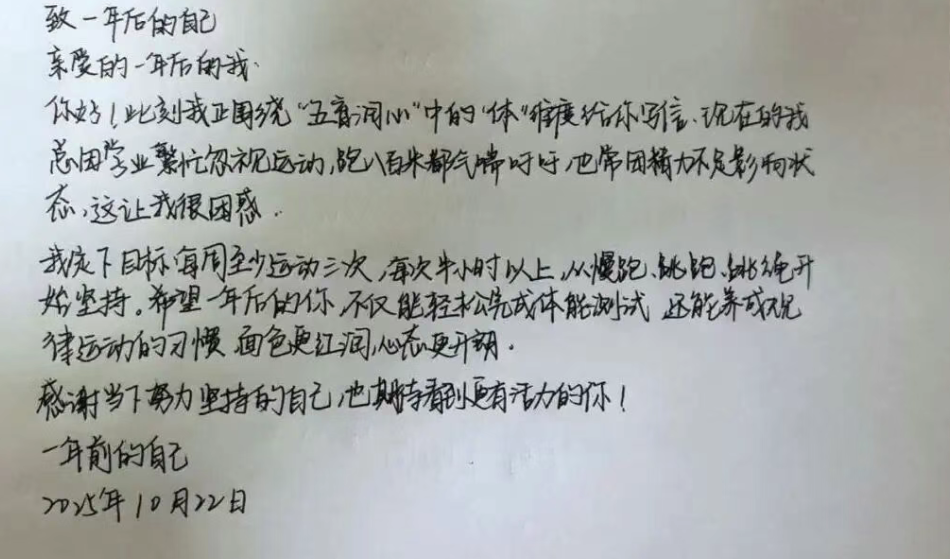 致一年后的自己
亲爱的一年后的我.
你好！此刻我正围绕“五育润心”中的“体”维度给你写信. 现在的我
总因学业繁忙忽视运动,跑八百米都气喘吁吁,也常因精力不足影响状
态,这让我很困惑.
我定下目标,每周至少运动三次,每次半小时以上,从慢跑、跳跑、跳绳开
始坚持.希望一年后的你,不仅能轻松完成体能测试 还能养成规
律运动的习惯 面色更红润,心态更开朗.
感谢当下努力坚持的自己,也期待看到更有活力的你！
一年前的自己
2025年10月22日